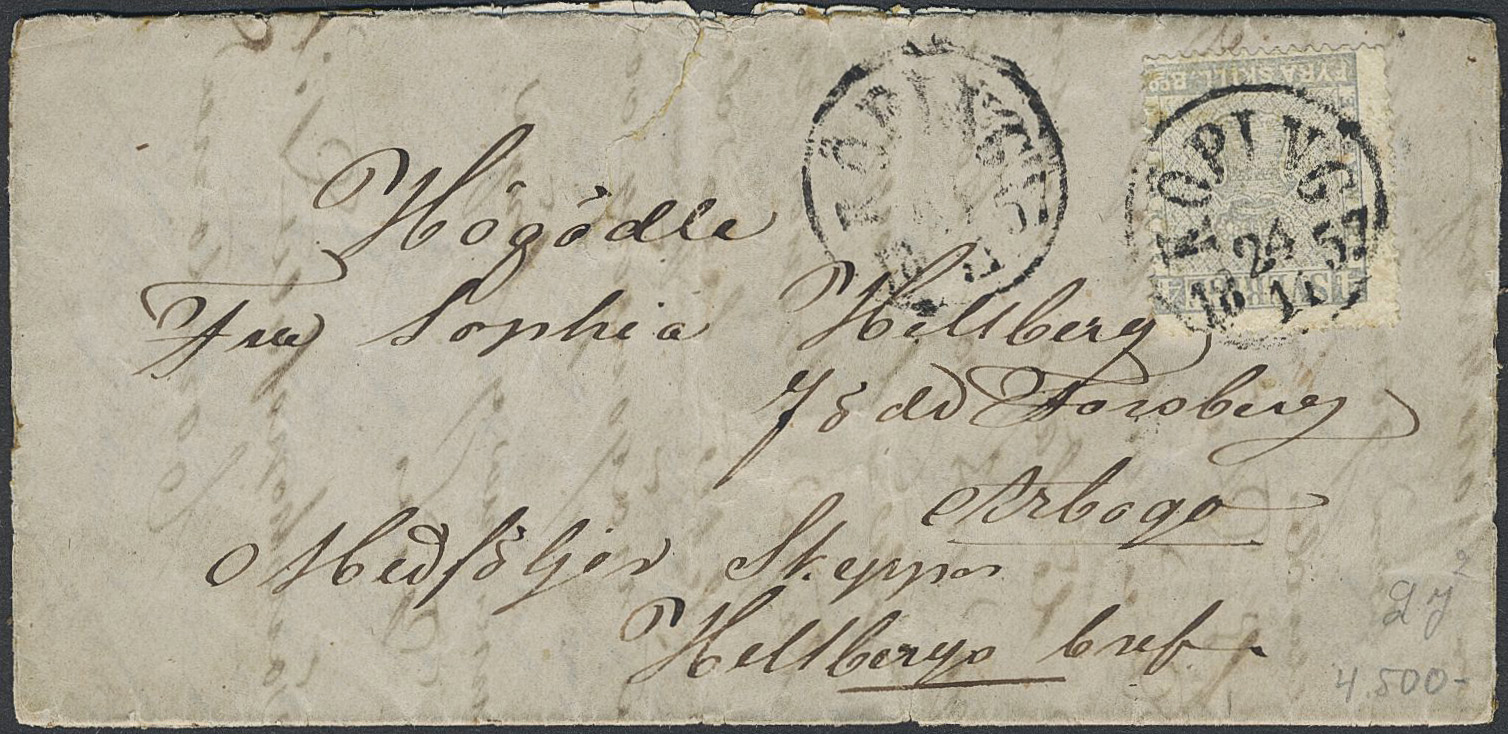 KÖPING
18 57
KÖPING
24
18 11 57
FYRA SKILL. Bco
Högädle
Fru Sophia Hellberg
född Forsberg
Arboga
Medföljer Skeppr
Hellbergs bref.
4.500-